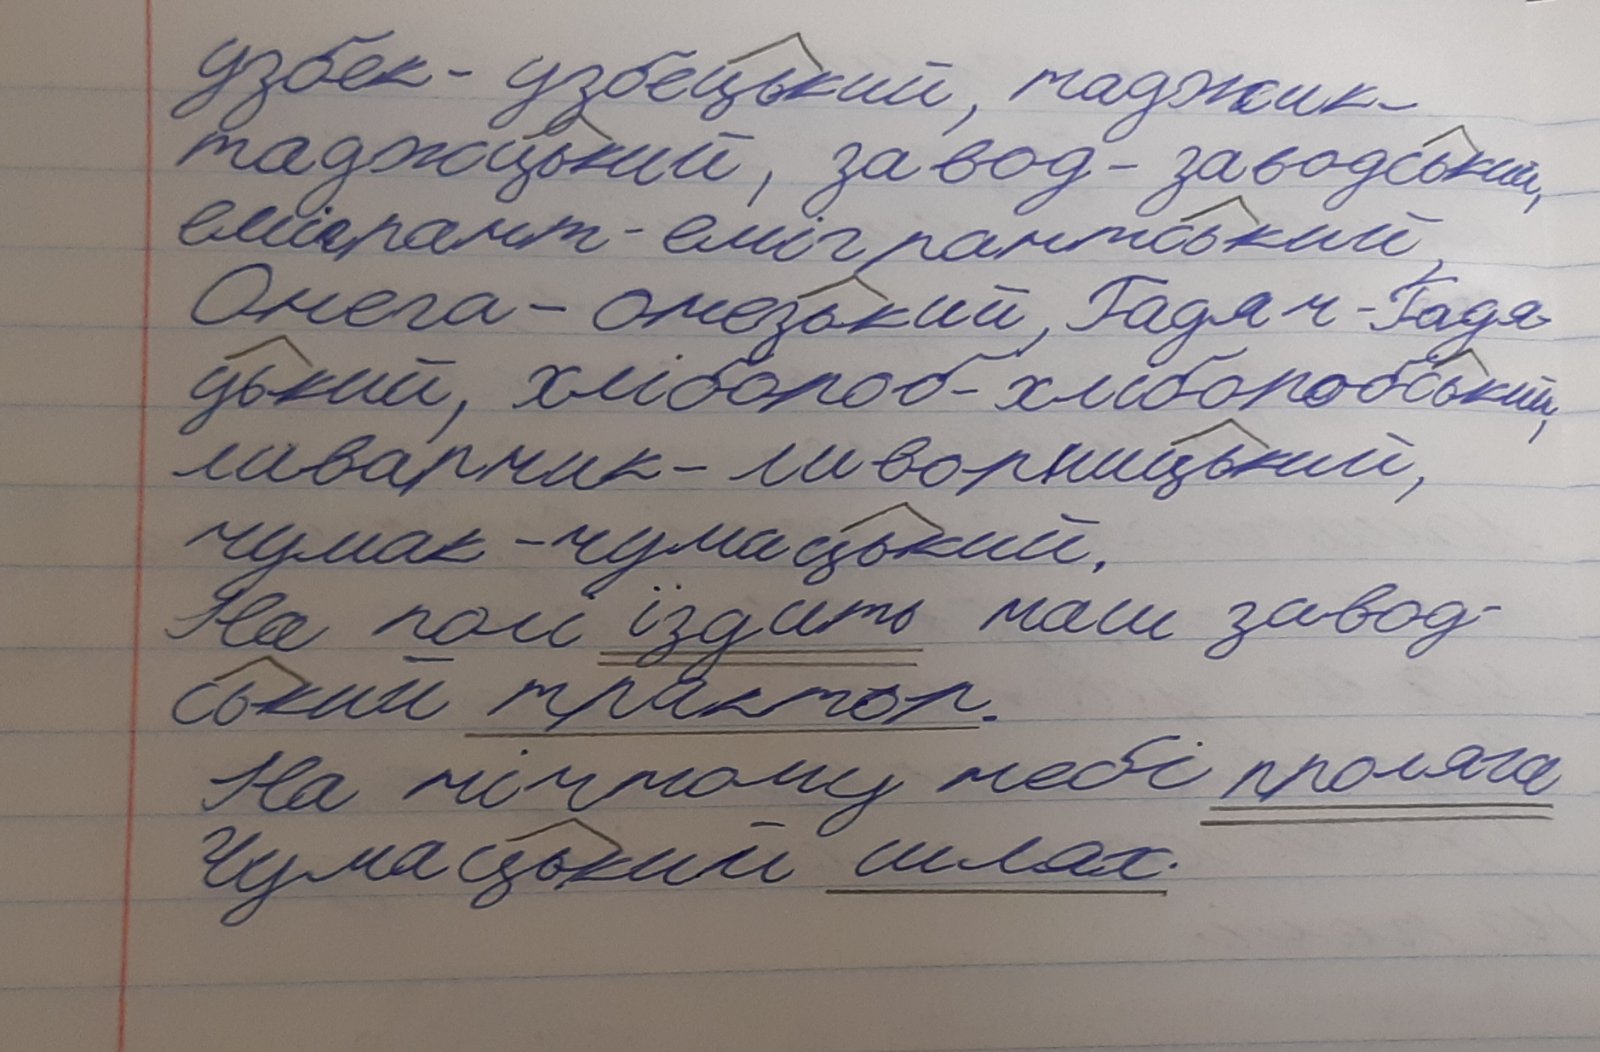 узбек- узбецький, таджик-
таджицький, завод- заводський,
емігрант- емігрантський,
Онега- онезький, Гадяч-Гадя-
цький, хлібороб- хліборобський,
ливарник- ливорницький,
чумак -чумацький.
На полі їздить наш завод-
ський трактор.
На нічному небі проляга
Чумацький шлях.